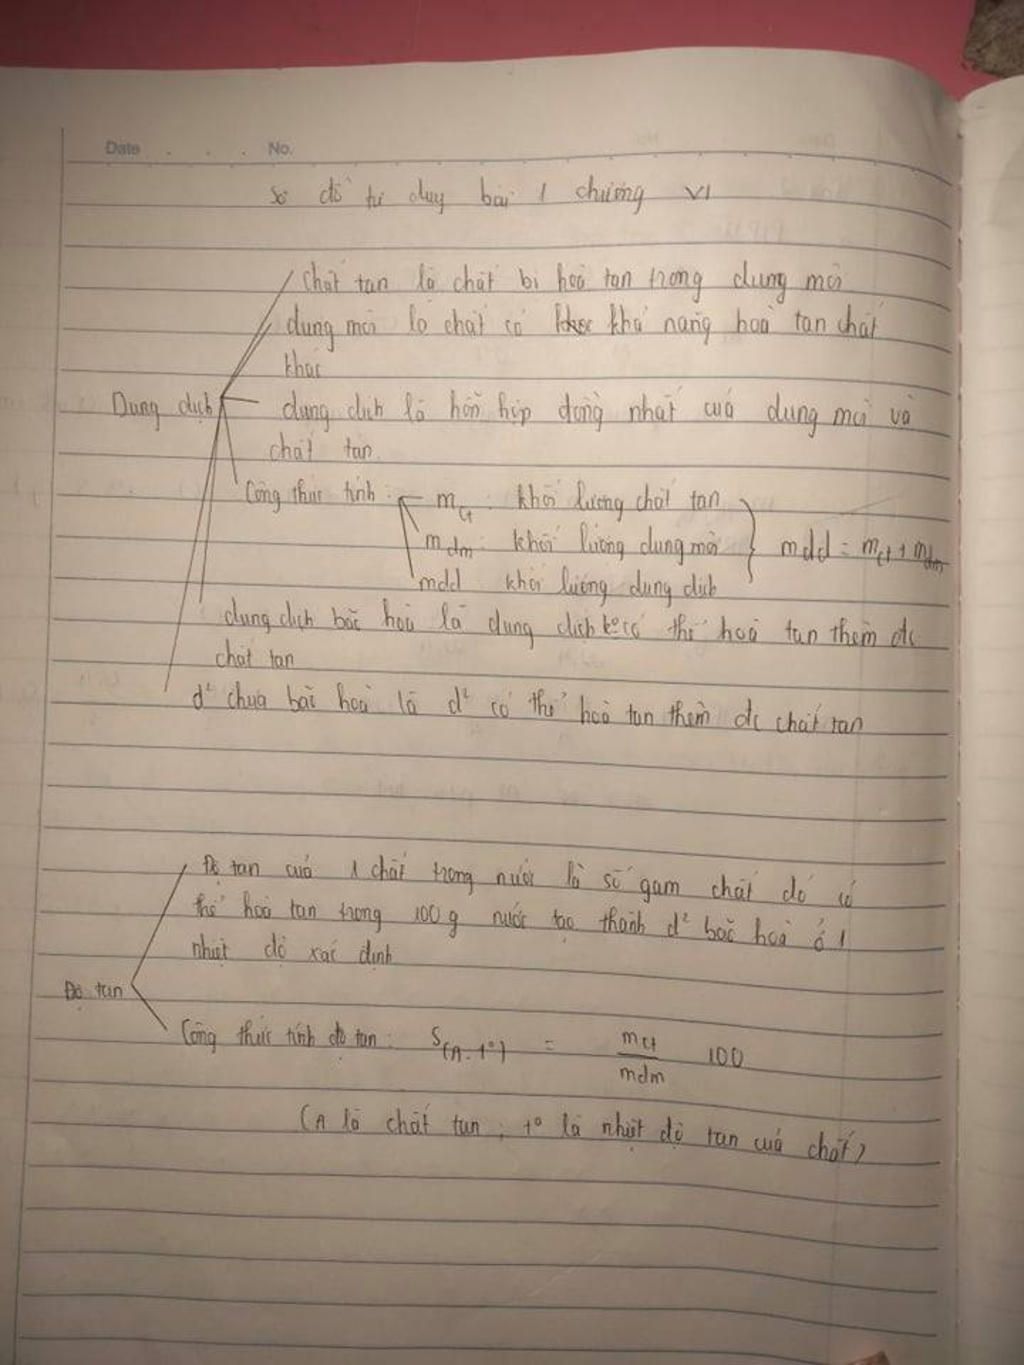 Date . . . No.
Sơ đồ tư duy bài 1 chương VI
Chất tan là chất bị hoà tan trong dung môi
dung môi là chất có khả năng hoà tan chất
khác
Dung dịch
dung dịch là hỗn hợp đồng nhất của dung môi và
chất tan
Công thức tính: mct: khối lượng chất tan
mdm: khối lượng dung môi
mdd = mct + mdm
mdd khối lượng dung dịch
dung dịch bão hoà là dung dịch ko có thể hoà tan thêm đc
chất tan
d² chưa bão hoà là d² có thể hoà tan thêm đc chất tan
Độ tan của 1 chất trong nước là số gam chất đó có
thể hoà tan trong 100g nước tạo thành d² bão hoà ở 1
nhiệt độ xác định
Độ tan
Công thức tính độ tan: S(A.t°) = mct/mdm 100
(A là chất tan; t° là nhiệt độ tan của chất)